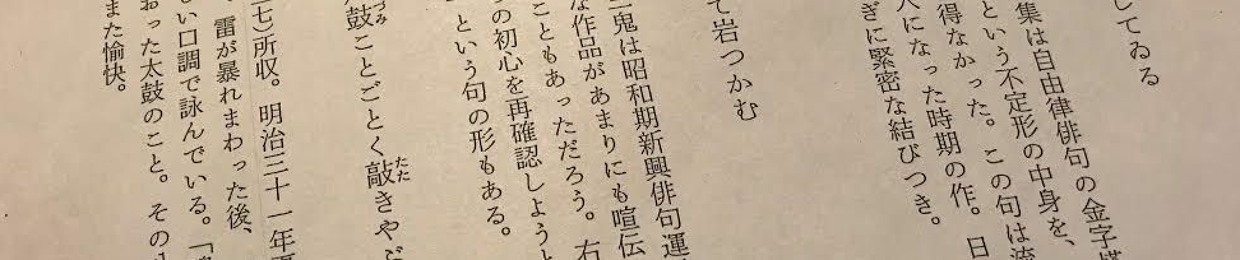 してゐる
集は自由律俳句の金字塔
という不定形の中身を、
得なかった。この句は流
人になった時期の作。日
ぎに緊密な結びつき。
て岩つかむ
三鬼は昭和期新興俳句運
な作品があまりにも喧伝
こともあっただろう。右
の初心を再確認しようと
という句の形もある。
鼓ことごとく敲きやぶ
七)所収。明治三十一年
、雷が暴れまわった後、
しい口調で詠んでいる。「
おった太鼓のこと。その
また愉快。